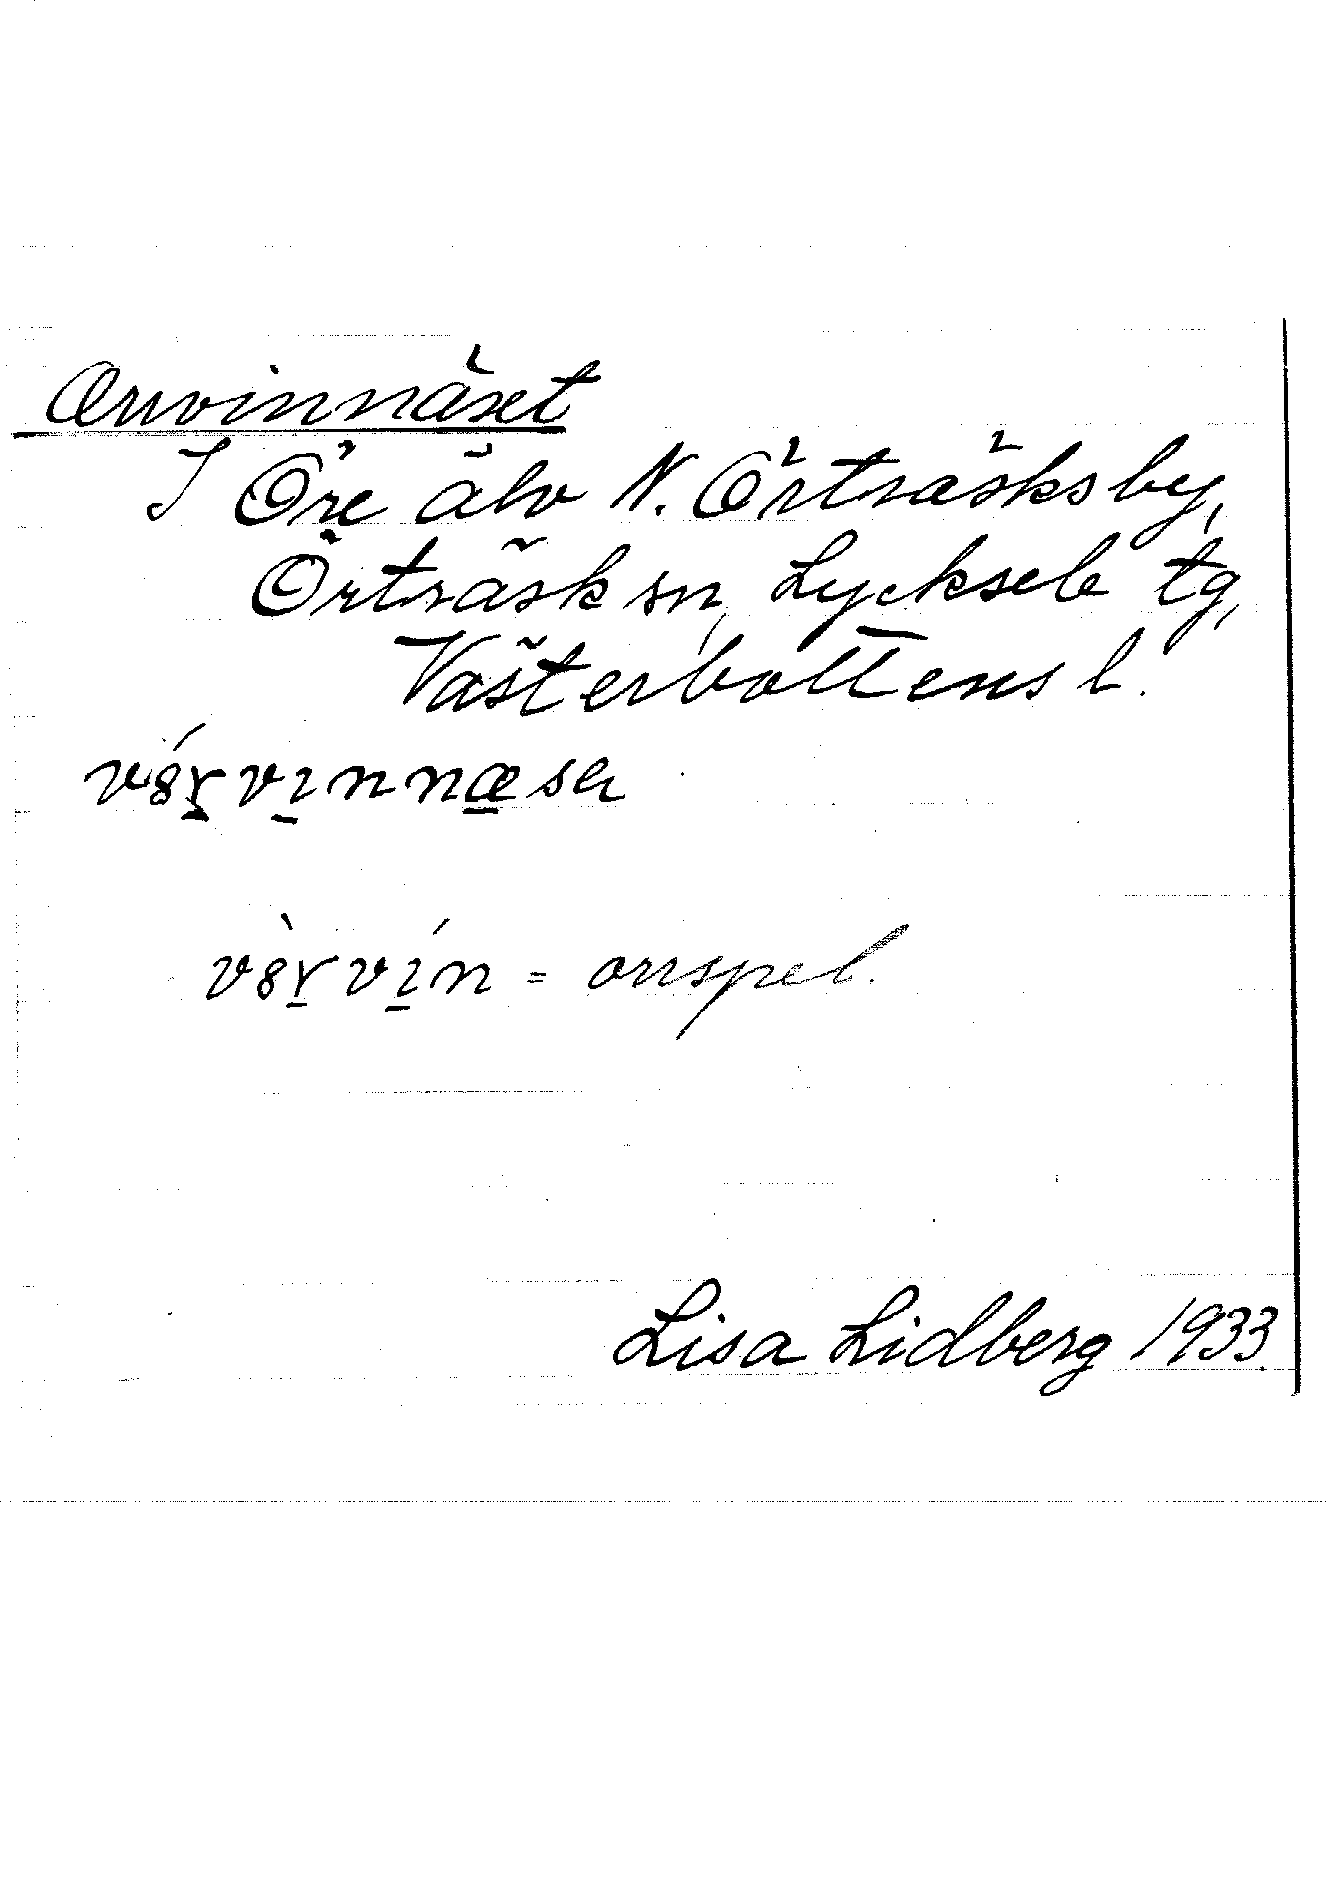 Orrvinnäset
I Öre älv N. Örträsksby,
Örträsk sn, Lycksele tg,
Västerbottens l.
= orrspel.
Lisa Lidberg 1933